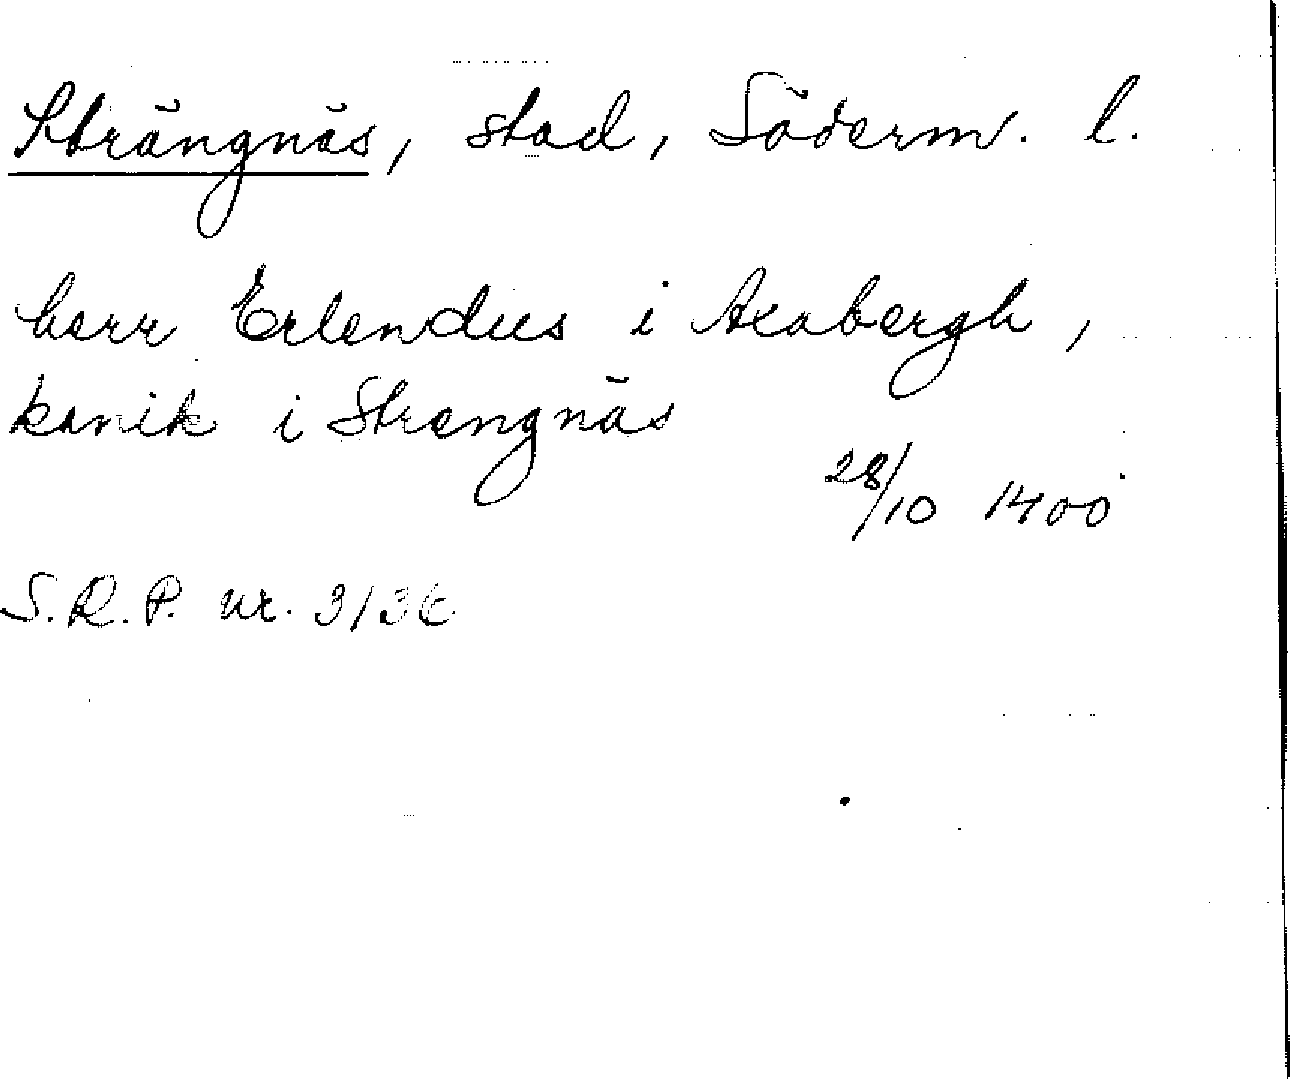 Strängnäs, stad, Söderm. l.
herr Erlendus i Axabergh,
kanik i Strengnäs
28/10 1400
S.R.P. nr. 3136